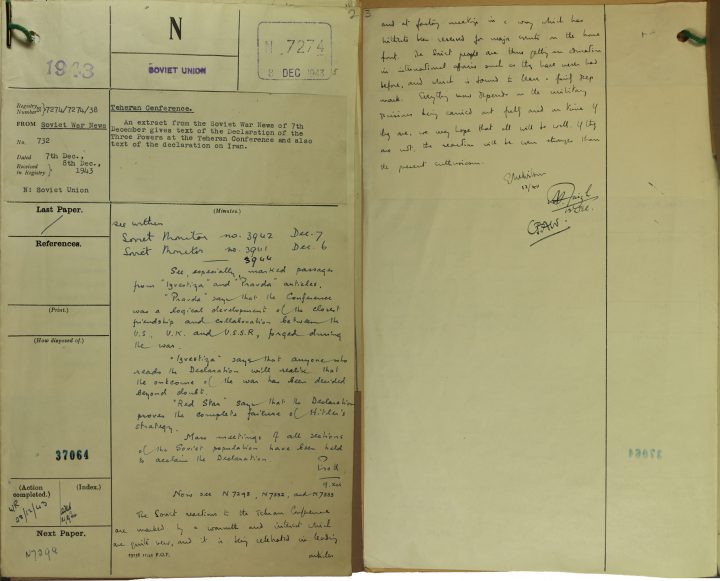 1943
N
SOVIET UNION
N 7274
8 DEC 1943
Registry
Number } 7274/7274/38
FROM Soviet War News
No. 732
Dated 7th Dec.,
Received
in Registry } 8th Dec.,
1943
N: Soviet Union
Teheran Conference.
An extract from the Soviet War News of 7th
December gives text of the Declaration of the
Three Powers at the Teheran Conference and also
text of the declaration on Iran.
Last Paper.
References.
(Print.)
(How disposed of.)
37064
(Action
completed.)
(Index.)
Next Paper.
N7294
(Minutes.)
see within
Soviet Monitor no. 3942 Dec. 7
Soviet Monitor no. 3941 Dec. 6
3944
See, especially, marked passages
from "Izvestiya" and "Pravda" articles.
"Pravda" says that the Conference
was a logical development of the closest
friendship and collaboration between the
U.S., U.K. and U.S.S.R, forged during
the war.
"Izvestiya" says that anyone who
reads the Declaration will realise that
the outcome of the war has been decided
beyond doubt.
"Red Star" says that the Declaration
proves the complete failure of Hitler's
strategy.
Mass meetings of all sections
of the Soviet population have been held
to acclaim the Declaration.
9.xii
Now see N 7293, N 7332, and N 7333
The Soviet reactions to the Tehran Conference
are marked by a warmth and interest which
are quite new, and it is being celebrated in leading
articles
F.O.P.
3
and at factory meetings in a way which has
hitherto been reserved for major events on the home
front. The Soviet people are thus getting an education
in international affairs such as they have never had
before, and which is bound to leave a fairly deep
mark. Everything now depends on the military
decisions being carried out fully and in time. If
they are, we may hope that all will be well. If they
are not, the reaction will be even stronger than
the present enthusiasm.